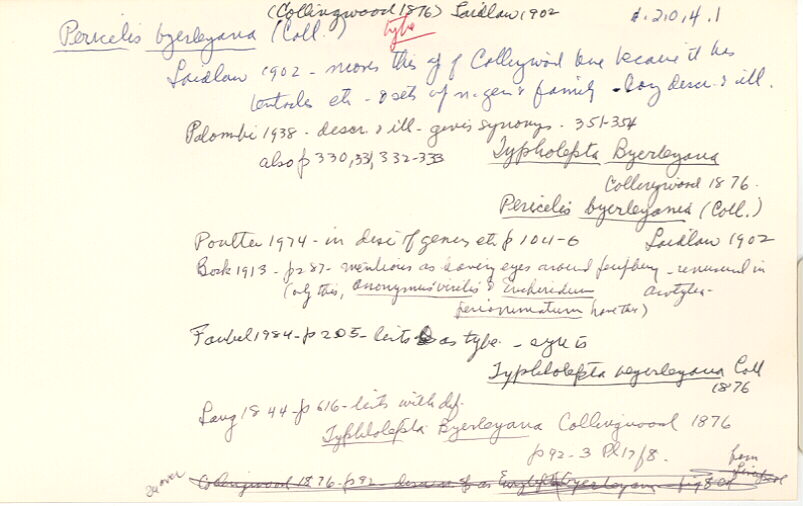 (Collingwood 1876) Laidlaw 1902
Pericelis byerleyana (Coll.) type 4.210,4.1
Laidlaw 1902 - moves this sp f Collingwood one because it has
tentacles etc - & sets up n. gen & family - long descr. & ill.
Palombi 1938 - descr. & ill - gives synonyms - 351-354
also p 330, 331, 332-333
Typholepta Byerleyana
Collingwood 1876.
Pericelis byerleyania (Coll.)
Laidlaw 1902
Poulter 1974 - in disc of genus etc p 104-6
Bock 1913 - p 287 - mentions as having eyes around periphery - unusual in
(only this, anonymus virilis & Enchiridium Acotylea
periommatum have this)
Faubel 1984 - p 205 - lists as type - syn to
Typhlolepta byerleyana Coll
1876
Lang 1844 - p 616 - lists with def.
Typhlolepta Byerleyana Collingwood 1876
p 92-3 Pl 17 f8.
over
Collingwood 1876 - p 92 - as byerleyana - fig 8 on
from